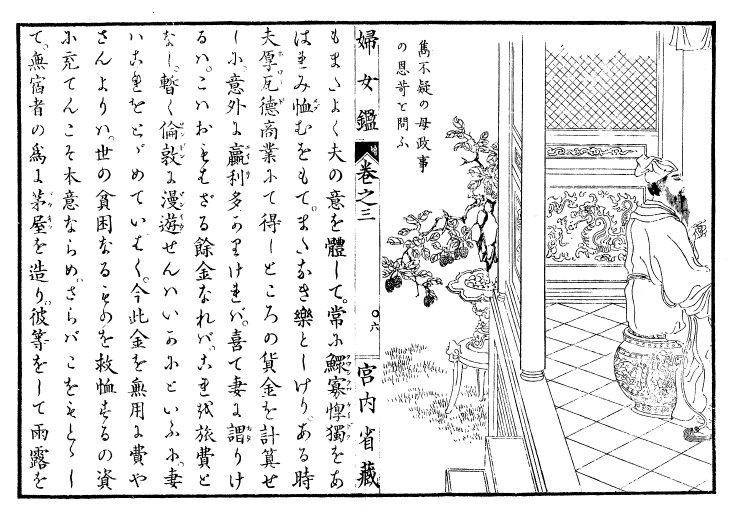 雋不疑の母政事
の恩苛を問ふ
婦女鑑 卷之三 ○六 宮内省藏
もまたよく夫の意を體して。常に鰥寡惸獨をあ
はれみ恤むをもて。またなき樂としけり。ある時
夫厚瓦德商業にて得しところの貨金を計算せ
しに。意外に贏利多かりければ。喜て妻に謂りけ
るハ。こハおもはざる餘金なれバ。これを旅費と
なし。暫く倫敦に漫遊せんハいかにといふに。妻
ハこれをとゞめていはく。今此金を無用に費や
さんよりハ。世の貧困なるものを救恤するの資
に充てんこそ本意ならめ。さらバこをもとゝし
て。無宿者の爲に茅屋を造り。彼等をして雨露を